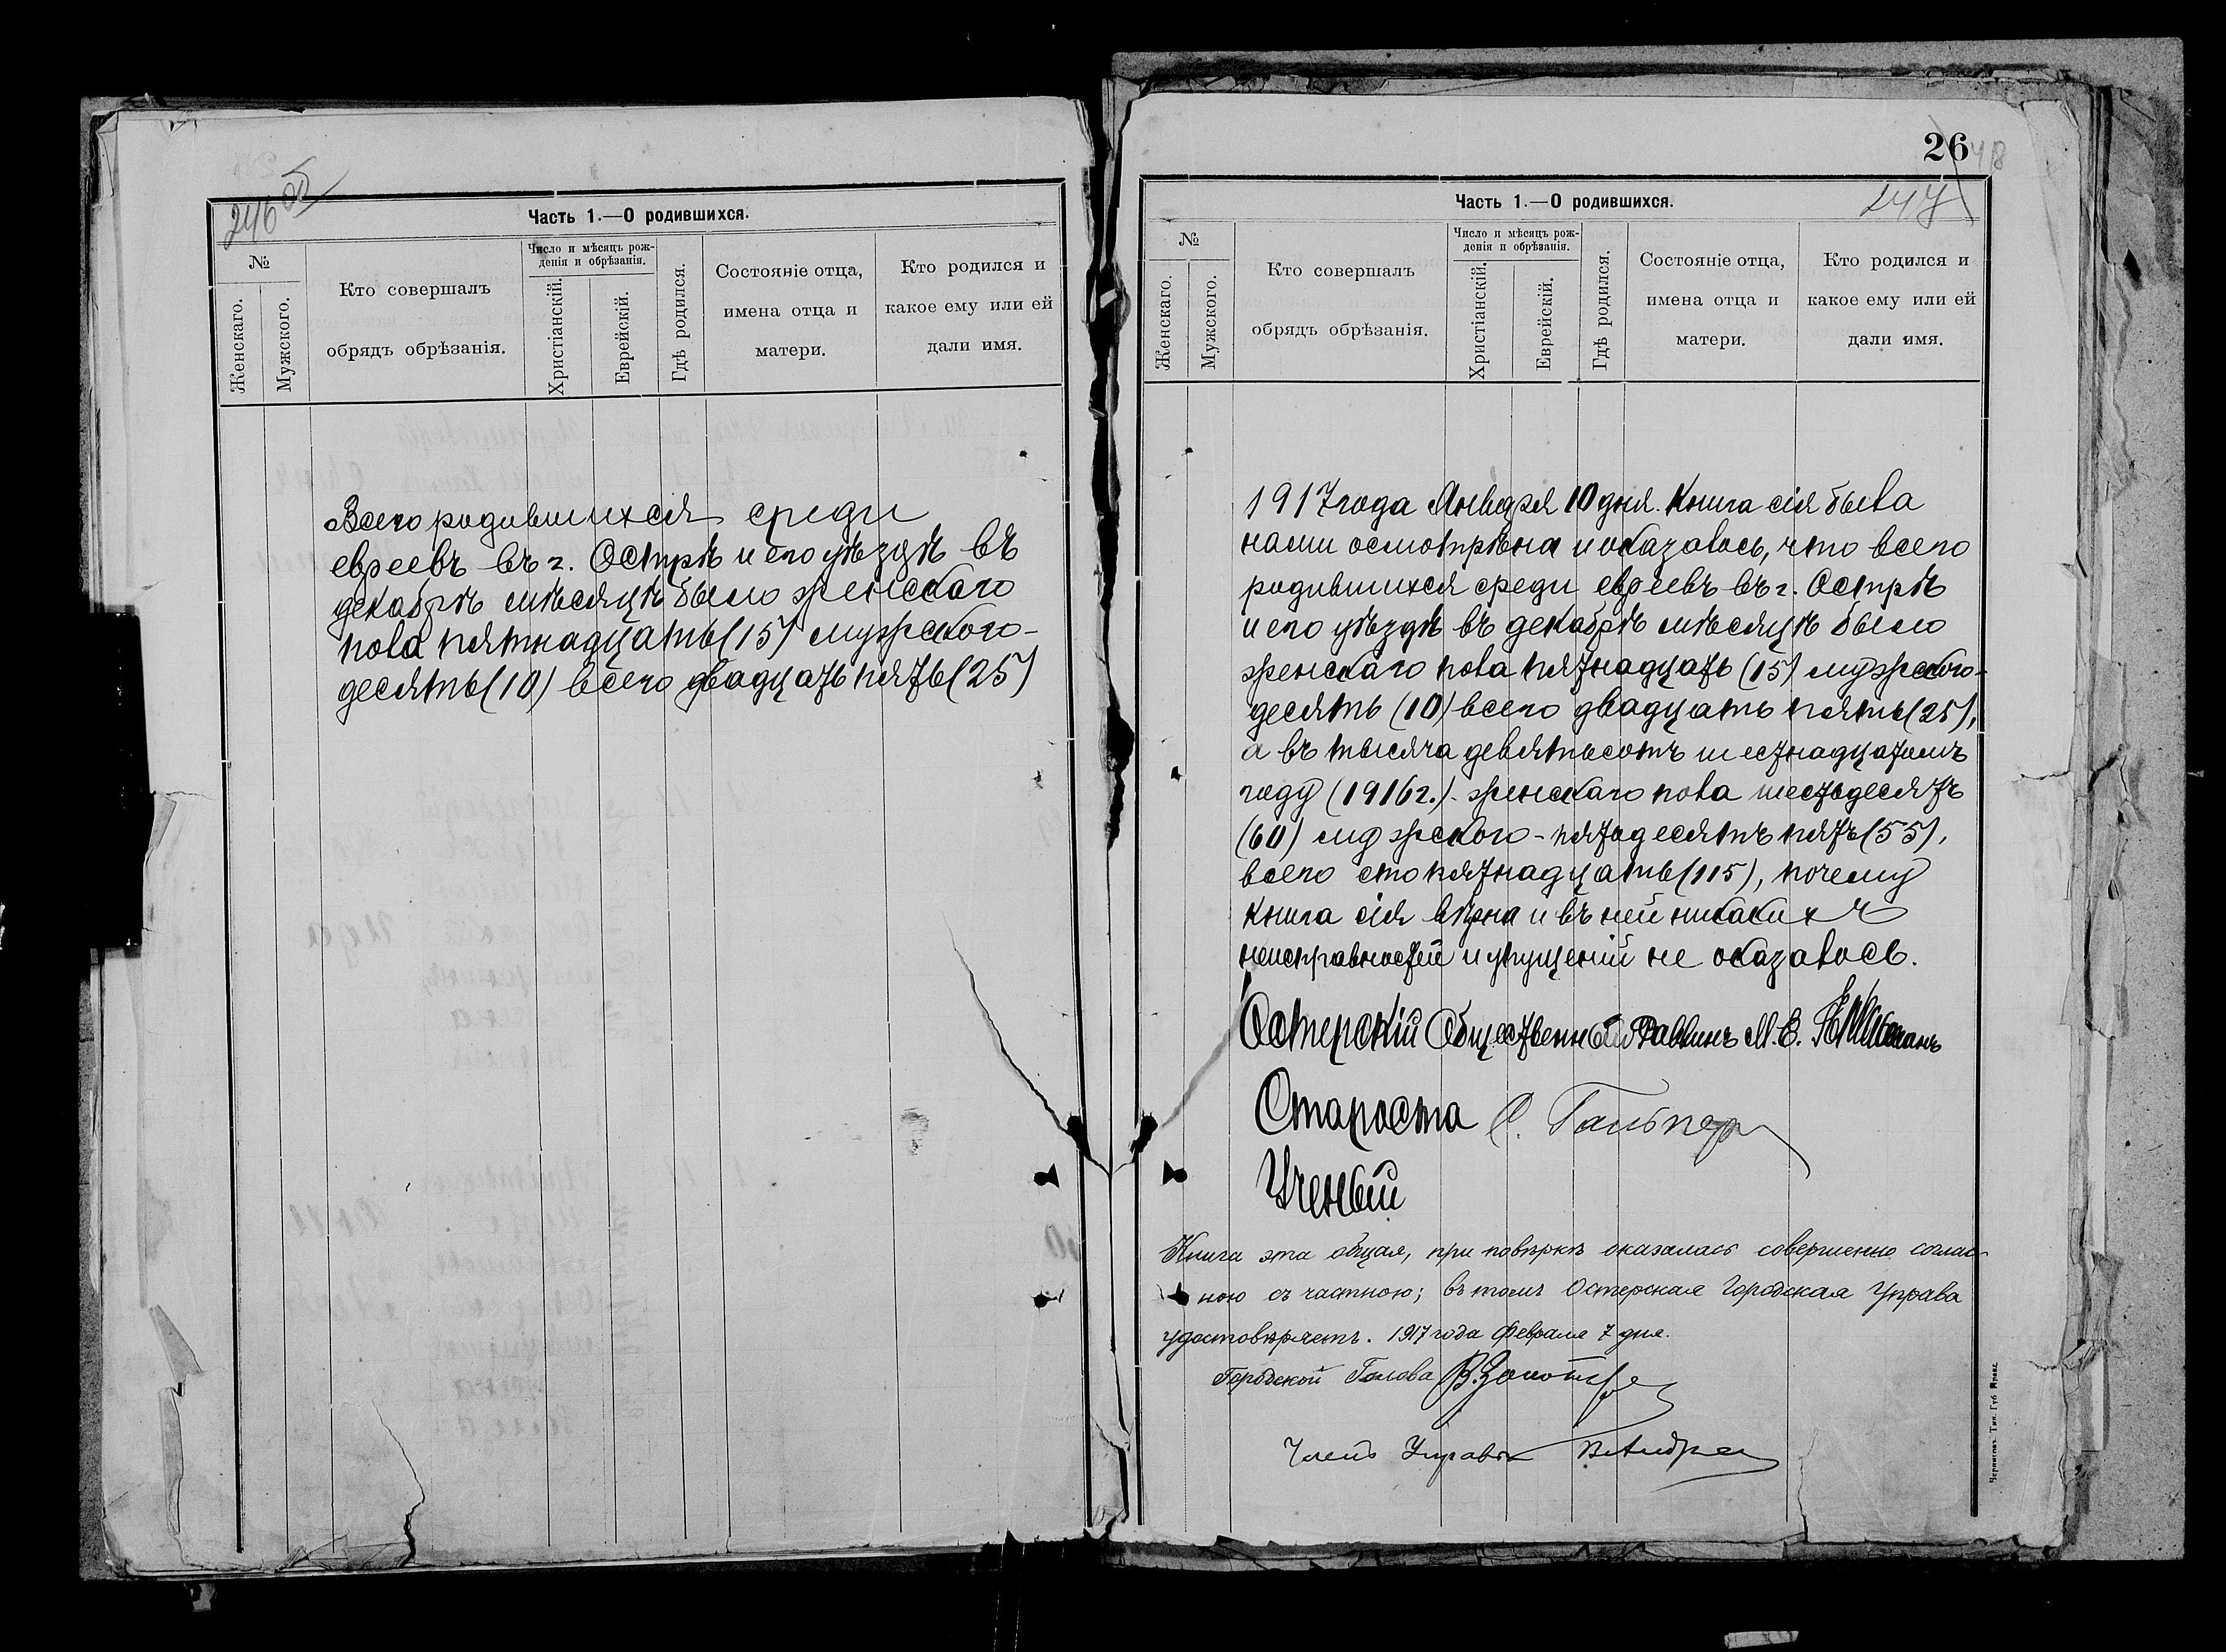 246 об
Часть 1.—О родившихся.
№
Женскаго.
Мужского.
Кто совершалъ
обрядъ обрѣзанія.
Число и мѣсяцъ рож-
денія и обрѣзанія.
Христіанскій.
Еврейскій.
Гдѣ родился.
Состояніе отца,
имена отца и
матери.
Кто родился и
какое ему или ей
дали имя.
Всего родившихся среди
евреевъ въ г. Острѣ и его уѣздѣ въ
декабрѣ мѣсяцѣ было женскаго
пола пятнадцать (15) мужского-
десять (10) всего двадцать пять (25)
26
247
Часть 1.—О родившихся.
№
Женскаго.
Мужского.
Кто совершалъ
обрядъ обрѣзанія.
Число и мѣсяцъ рож-
денія и обрѣзанія.
Христіанскій.
Еврейскій.
Гдѣ родился.
Состояніе отца,
имена отца и
матери.
Кто родился и
какое ему или ей
дали имя.
1917 года Января 10 дня. Книга сія была
нами осмотрѣна и оказалось, что всего
родившихся среди евреевъ въ г. Острѣ
и его уѣздѣ въ декабрѣ мѣсяцѣ было
женскаго пола пятнадцать (15) мужского-
десять (10) всего двадцать пять (25),
а въ тысяча девятьсотъ шестнадцатомъ
году (1916 г.)- женскаго пола шестьдесятъ
(60) мужского - пятьдесятъ пять (55),
всего сто пятнадцать (115), почему
книга сія вѣрна и въ ней никакихъ
неисправностей и упущеній не оказалось.
Остерскій Общественный Раввинъ М. Е.
Староста С. Гальпер
Ученый
Книга эта общая, при повѣркѣ оказалась совершенно соглас-
ною съ частною; въ томъ Остерская Городская Управа
удостовѣряетъ. 1917 года Февраля 7 дня.
Городской Голова
Членъ Управы
Черниговъ. Тип. Губ. Правл.